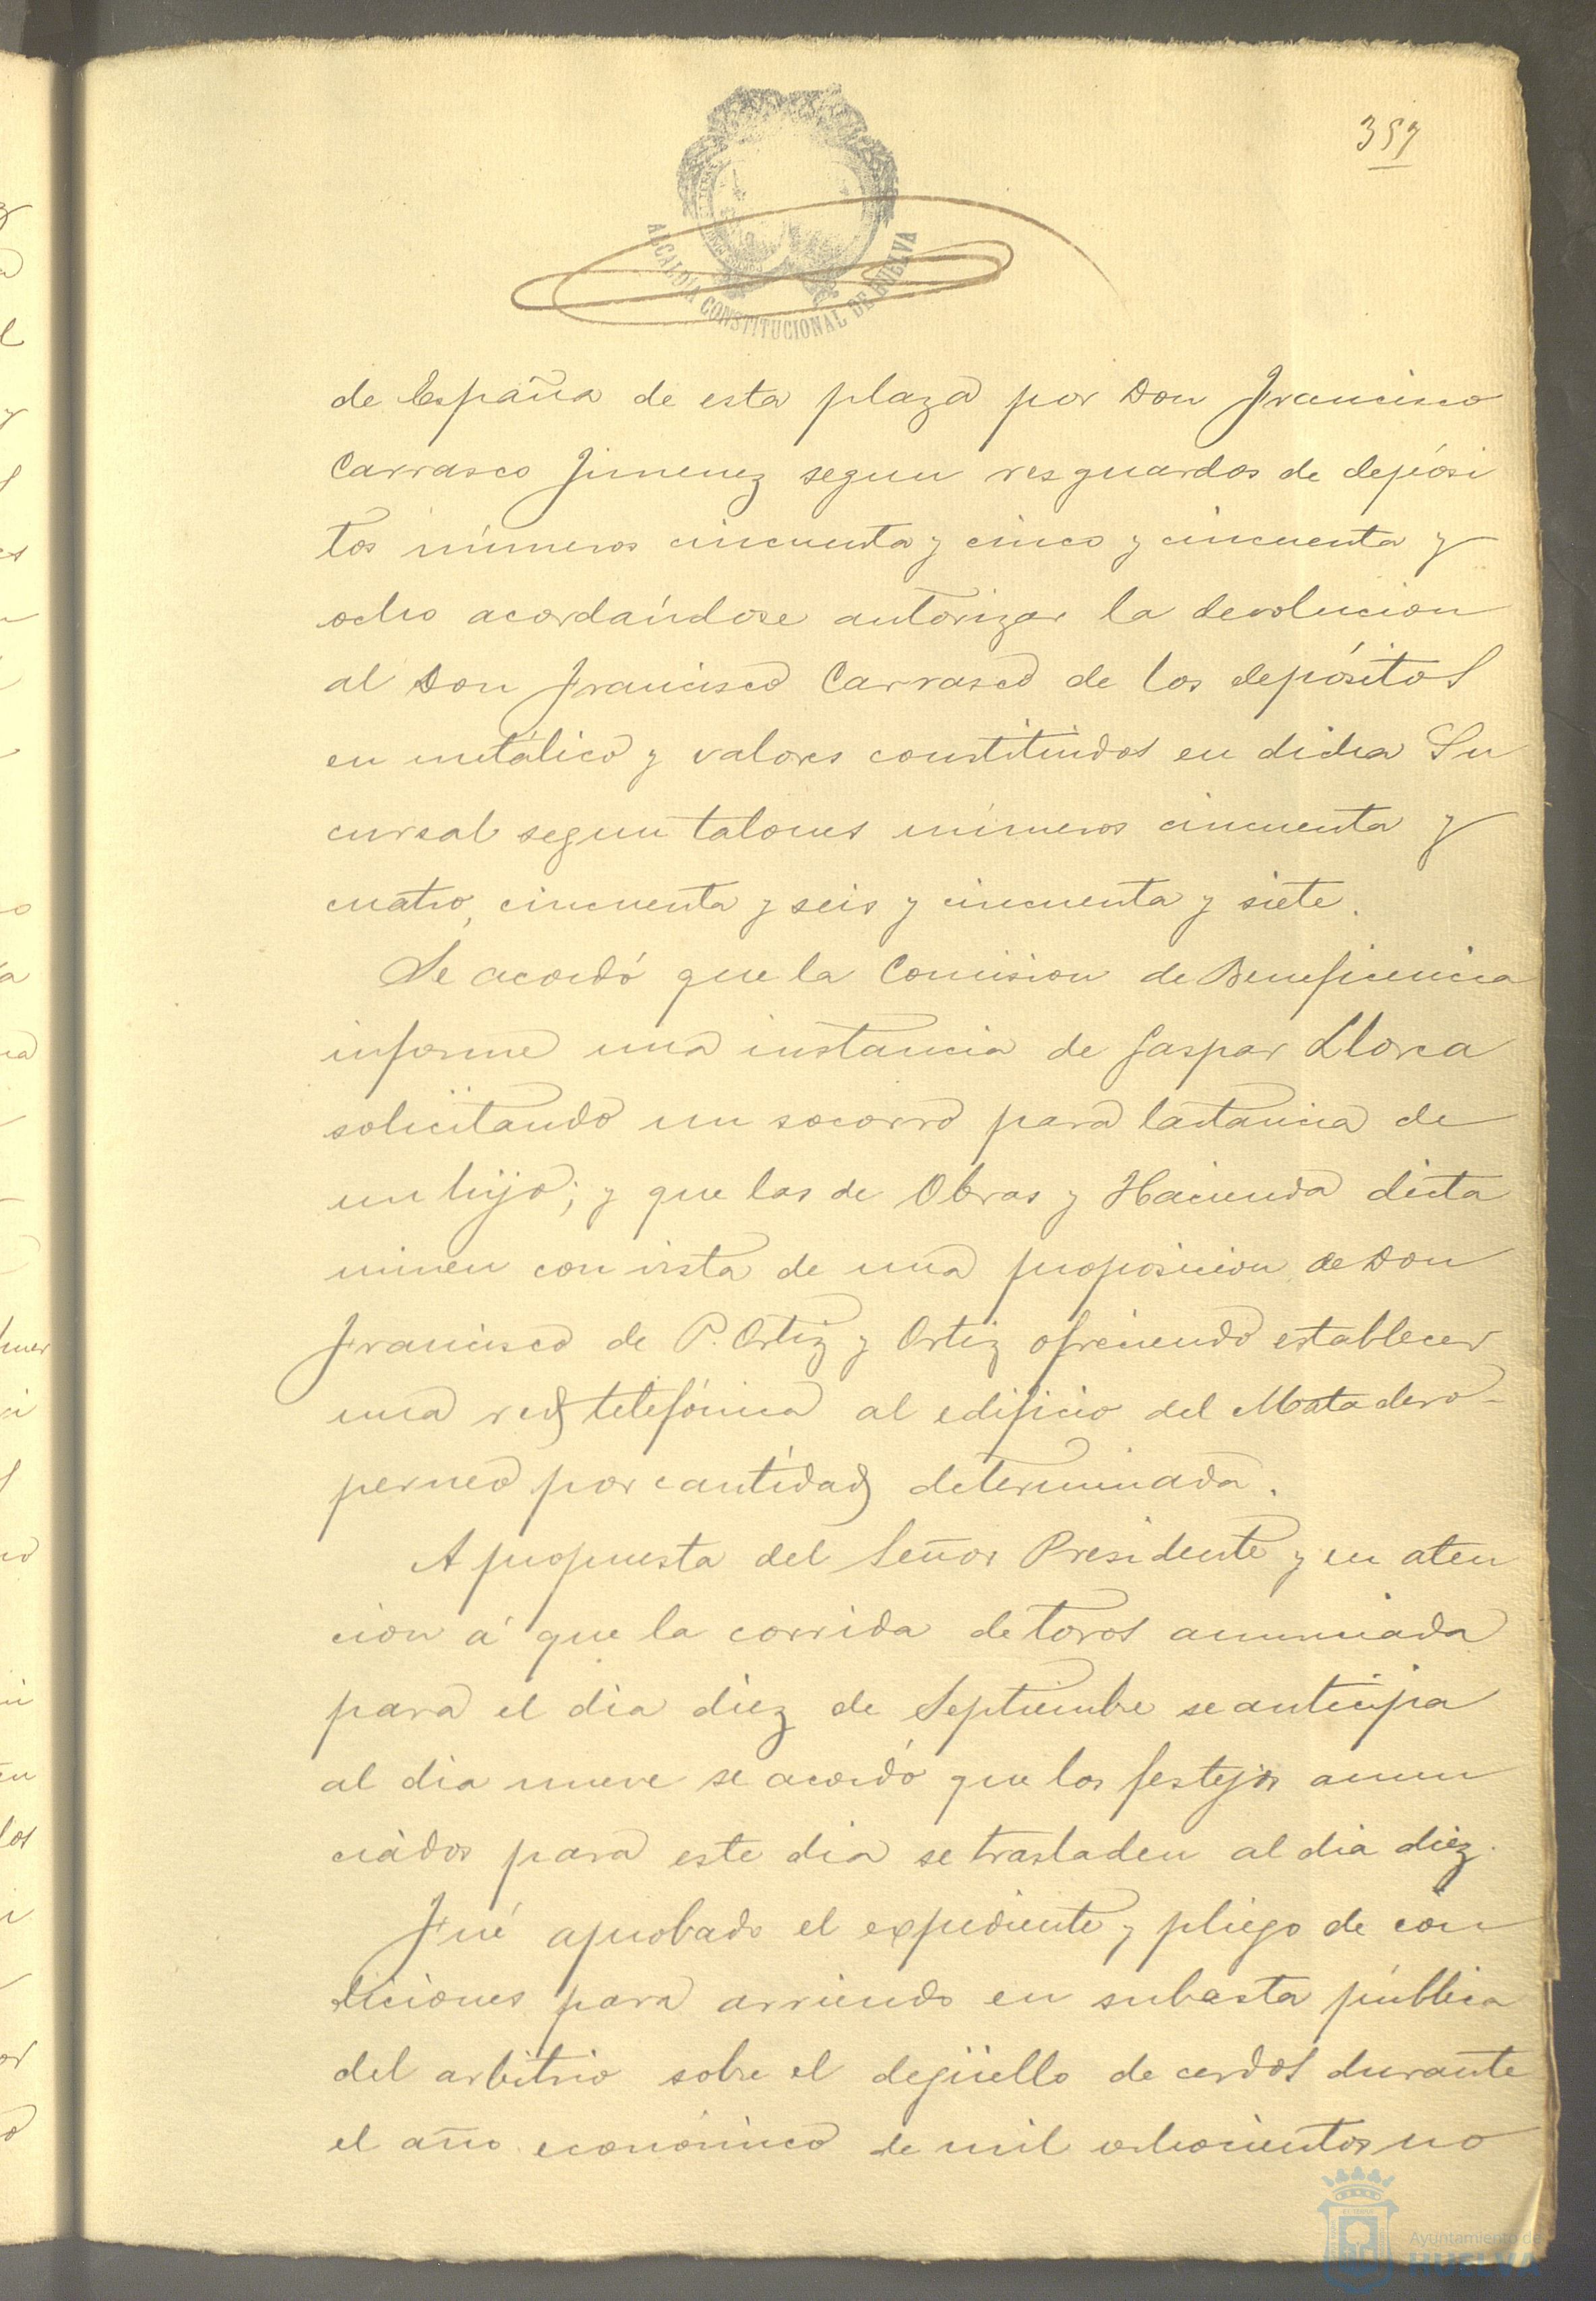 357
ALCALDIA CONSTITUCIONAL DE HUELVA
de España de esta plaza por Don Francisco
Carrasco Jimenez segun resguardos de depósi
tos números cincuenta y cinco y cincuenta y
ocho acordándose autorizar la devolucion
al Don Francisco Carrasco de los depósitos
en metálico y valores constituidos en dicha Su
cursal segun talones números cincuenta y
cuatro, cincuenta y seis y cincuenta y siete.
Se acordó que la Comision de Beneficencia
informe una instancia de Gaspar Llorca
solicitando un socorro para lactancia de
un hijo; y que las de Obras y Hacienda dicta
minen con vista de una proposicion de Don
Francisco de P. Ortiz y Ortiz ofreciendo establecer
una red telefónica al edificio del Matadero
perneo por cantidad determinada.
A propuesta del Señor Presidente y en aten
cion á que la corrida de toros anunciada
para el dia diez de Septiembre se anticipa
al dia nueve se acordó que los festejos anun
ciados para este dia se trasladen al dia diez.
Fué aprobado el expediente y pliego de con
diciones para arriendo en subasta pública
del arbitrio sobre el degüello de cerdos durante
el año económico de mil ochocientos no
Ayuntamiento de
HUELVA